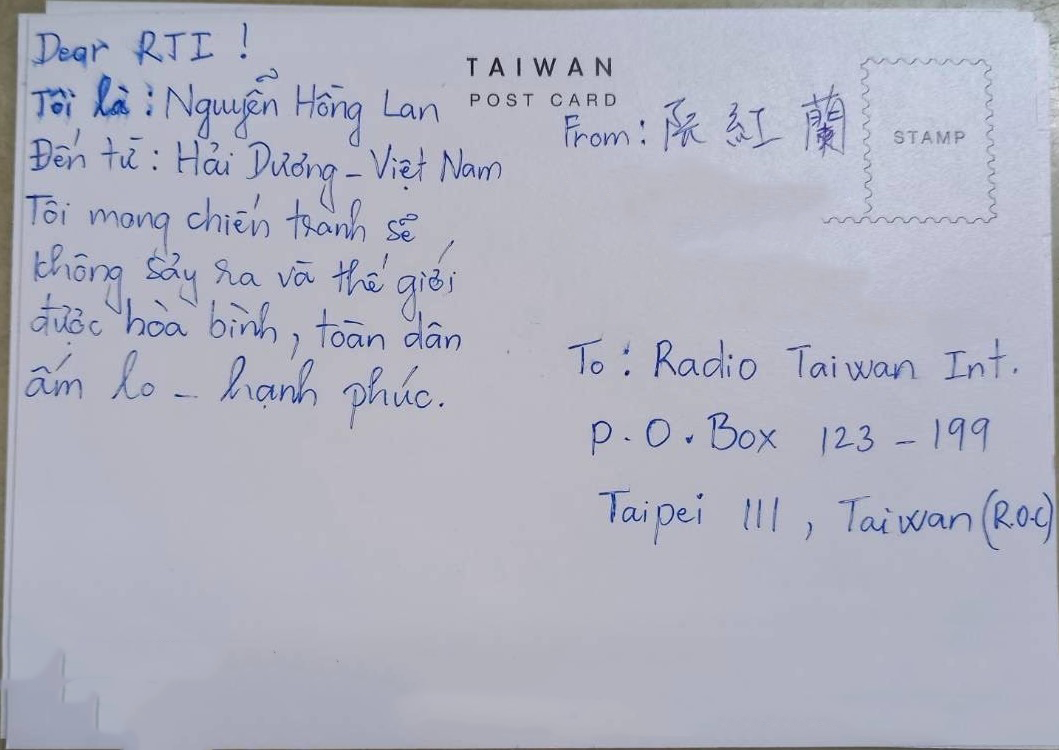 Dear RTI !
Tôi là : Nguyễn Hồng Lan
Đến từ : Hải Dương - Việt Nam
Tôi mong chiến tranh sẽ
không sảy ra và thế giới
được hòa bình, toàn dân
ấm lo - hạnh phúc.
TAIWAN
POST CARD
From : 阮 紅 蘭
STAMP
To : Radio Taiwan Int.
P.O.Box 123-199
Taipei 111, Taiwan (R.O.C)